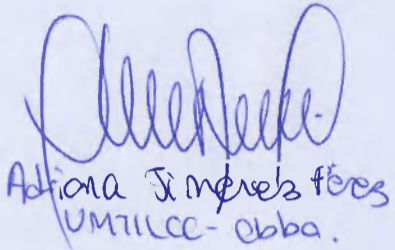 Adriana Jiménez Pérez
UMTILCC - cbba.